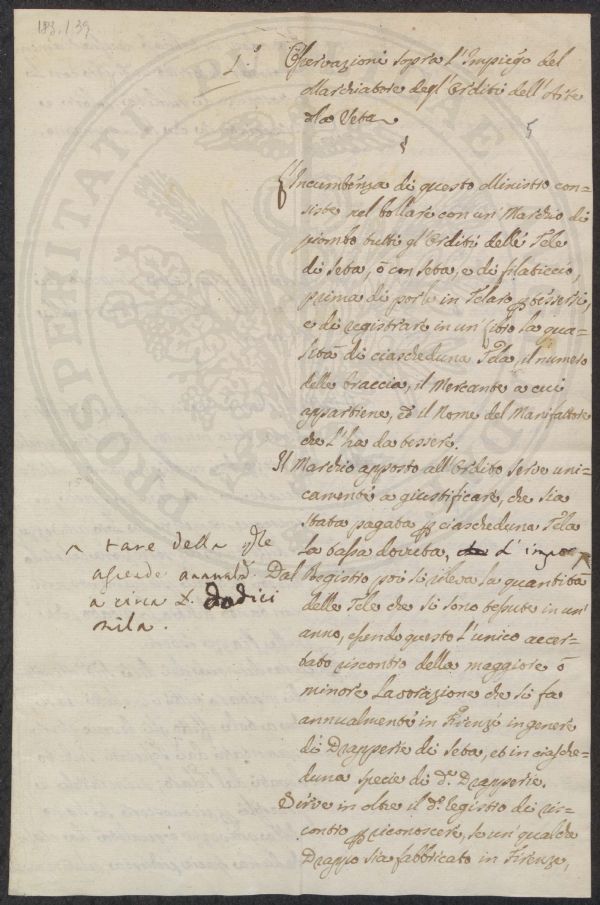 183.1.39
1.° Osservazioni sopra l'Impiego del
Marchiatore degl'Orditi dell'Arte
della Seta
5
L'Incumbenza di questo Ministro con=
siste nel bollare con un Marchio di
piombo tutti gl'Orditi delle Tele
di seta, ò con seta, e di filaticcio,
prima di porle in Telaro p tessersi,
e di registrare in un Libro la qua=
lità di ciascheduna Tela, il numero
delle braccia, il Mercante a cui
appartiene, ed il Nome del Manifattore
che l'ha da tessere.
Il Marchio apposto all'Ordito serve uni=
camente a giustificare, che sia
stata pagata p ciascheduna Tela
la tassa dovuta, l'impor
tare della qle
ascende annualm.
a circa £ dodici
mila.
Dal Registro poi si rileva la quantità
delle Tele che si sono tessute in un'
anno, essendo questo l'unico accer=
tato riscontro della maggiore ò
minore Lavorazione che si fa
annualmente in Firenze in genere
di Drapperie di Seta, et in ciasche=
duna specie di d.e Drapperie.
Serve in oltre il d.o Registro di ris=
contro p riconoscere, se un qualche
Drappo sia fabbricato in Firenze,
PROSPERITATI PUBLICAE